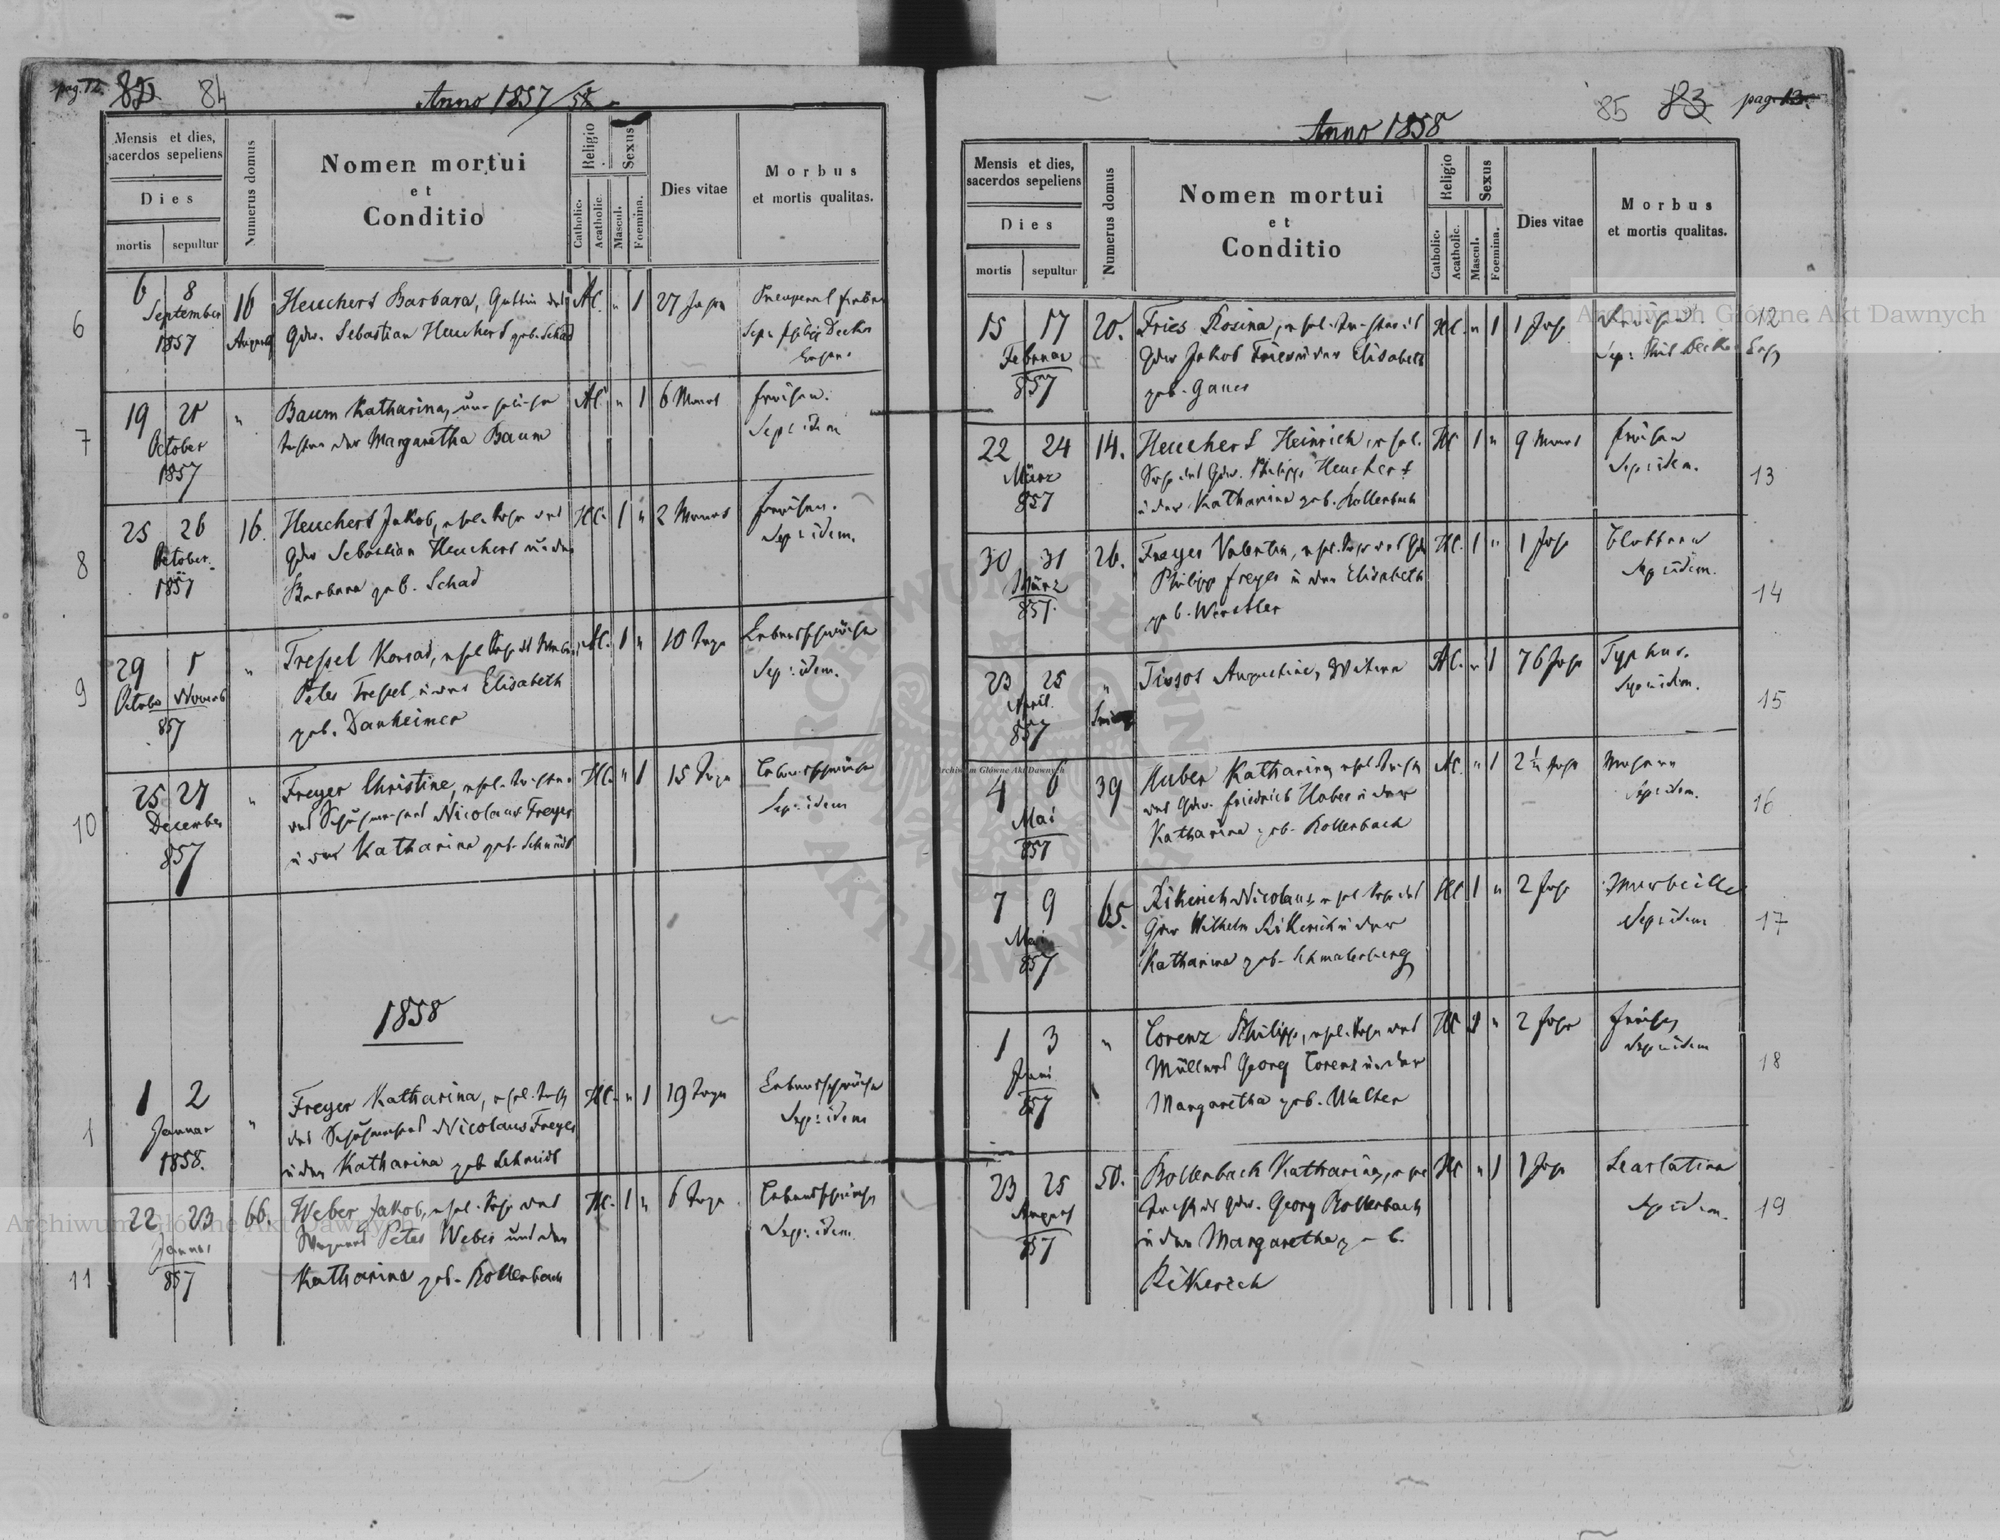 pag. 12. 82. 84
Anno 1857/58.
Mensis et dies, sacerdos sepeliens
Dies
mortis sepultur
Numerus domus
Nomen mortui
et
Conditio
Religio
Catholic.
Acatholic.
Sexus
Mascul.
Foemina.
Dies vitae
Morbus
et mortis qualitas.
6
6 8 16 Heuchert Barbara, Gattin des HC. " 1 27 Jahr
September Gdw. Sebastian Heuchert geb. Schad
1857
7
19 21 " Baum Katharina, HC " 1 6 Monat Fraisen.
October Tochter der Margaretha Baum Sep: idem
1857
8
25 26 16. Heuchert Jakob, ehel. Sohn des HC. 1 " 2 Monat Fraisen.
October Gdw Sebastian Heuchert und der Sep: idem.
1857 Barbara geb. Schad
9
29 1 " Tressel Konrad, ehel. Sohn des HC. 1 " 10 Tage Lebensschwäche
October Novemb Peter Tressel u der Elisabeth Sep: idem.
857 geb. Danheimer
10
25 27 " Freyer Christine, ehel. Tochter HC. " 1 15 Tage Lebensschwäche
December des Schuhmachers Nicolaus Freyer Sep: idem
857 u der Katharina geb. Schmidt
1858
1
1 2 " Freyer Katharina, ehel. Tocht HC. " 1 19 Tage Lebensschwäche
Januar des Schuhmachers Nicolaus Freyer Sep: idem
1858. u der Katharina geb Schmidt
11
22 23 66. Weber Jakob, ehel. Sohn des HC. 1 " 6 Tage Lebensschwäche
Januar Wagners Peter Weber und der Sep: idem.
857 Katharina geb. Rollenbach
85 83 pag. 13.
Anno 1858
Mensis et dies, sacerdos sepeliens
Dies
mortis sepultur
Numerus domus
Nomen mortui
et
Conditio
Religio
Catholic.
Acatholic.
Sexus
Mascul.
Foemina.
Dies vitae
Morbus
et mortis qualitas.
15 17 20. Fries Rosina, ehel. Tochter des HC. " 1 1 Jahr Fraisen. 12
Februar Gdw Jakob Fries u der Elisabeth
857 geb. Gauer
22 24 14. Heuchert Heinrich, ehel. HC 1 " 9 Monat Fraisen
März Sohn des Gdw. Philipp Heuchert Sep: idem. 13
857 u der Katharina geb. Rollenbach
30 31 26. Freyer Valentin, ehel. Sohn des Gdw HC. 1 " 1 Jahr Blattern
März Philipp Freyer u der Elisabeth Sep: idem. 14
857.
23 25 " Tissot Augustine, Witwe HC. " 1 76 Jahr Typhus.
April Sep: idem. 15
857
4 6 39 Huber Katharina, ehel. Tocht HC. " 1 2½ Jahr Masern
Mai des Gdw. Friedrich Huber u der Sep: idem. 16
857 Katharina geb. Rollenbach
7 9 65. Rikerich Nicolaus, ehel Sohn des HC 1 " 2 Jahr
Mai Gdw Wilhelm Rikerich u der Sep: idem 17
857 Katharina geb. Schmalenberg
1 3 " Lorenz Philipp, ehel. Sohn des HC 1 " 2 Jahr Fraisen
Juni Müllers Georg Lorenz u der Sep: idem 18
857 Margaretha geb. Walter
23 25 50. Rollenbach Katharina, ehe HC " 1 1 Jahr Scarlatina
August Tocht des Gdw. Georg Rollenbach Sep: idem. 19
857 u der Margaretha geb.
Rikerich
Archiwum Główne Akt Dawnych
Archiwum Główne Akt Dawnych
Archiwum Główne Akt Dawnych